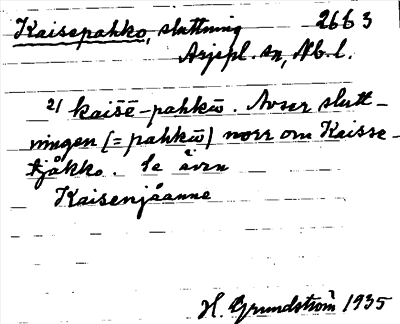 Kaisepahko, sluttning 2663
Arjepl. sn, Nb. l.
2/ kaisē-pahkū. Avser slutt-
ningen (= pahkū) norr om Kaisse-
tjåkko. Se även
Kaisenjåanne
H. Grundström 1935